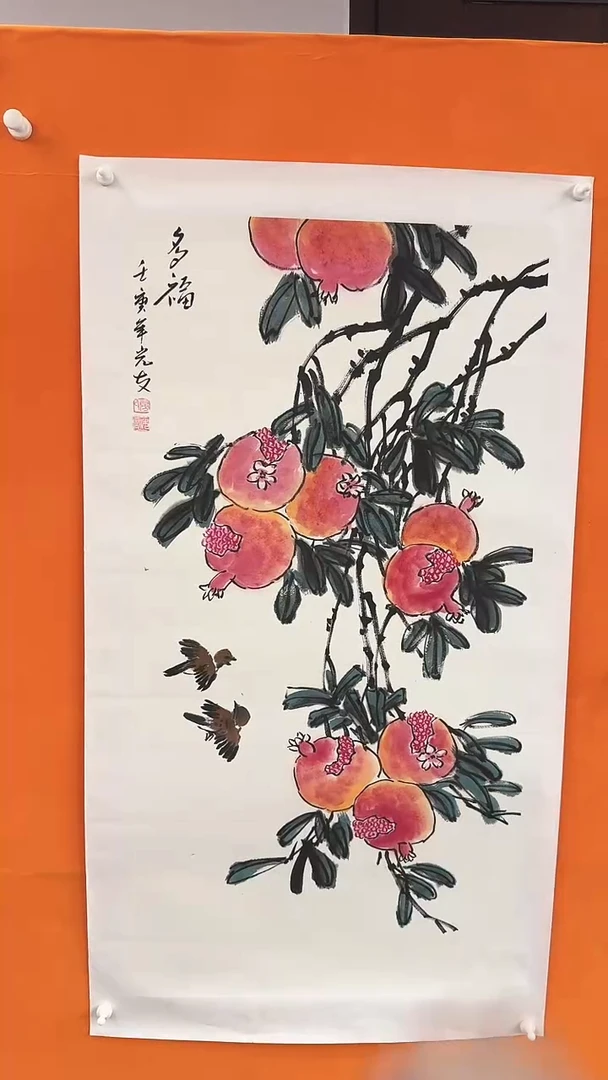 多福
壬寅年光友